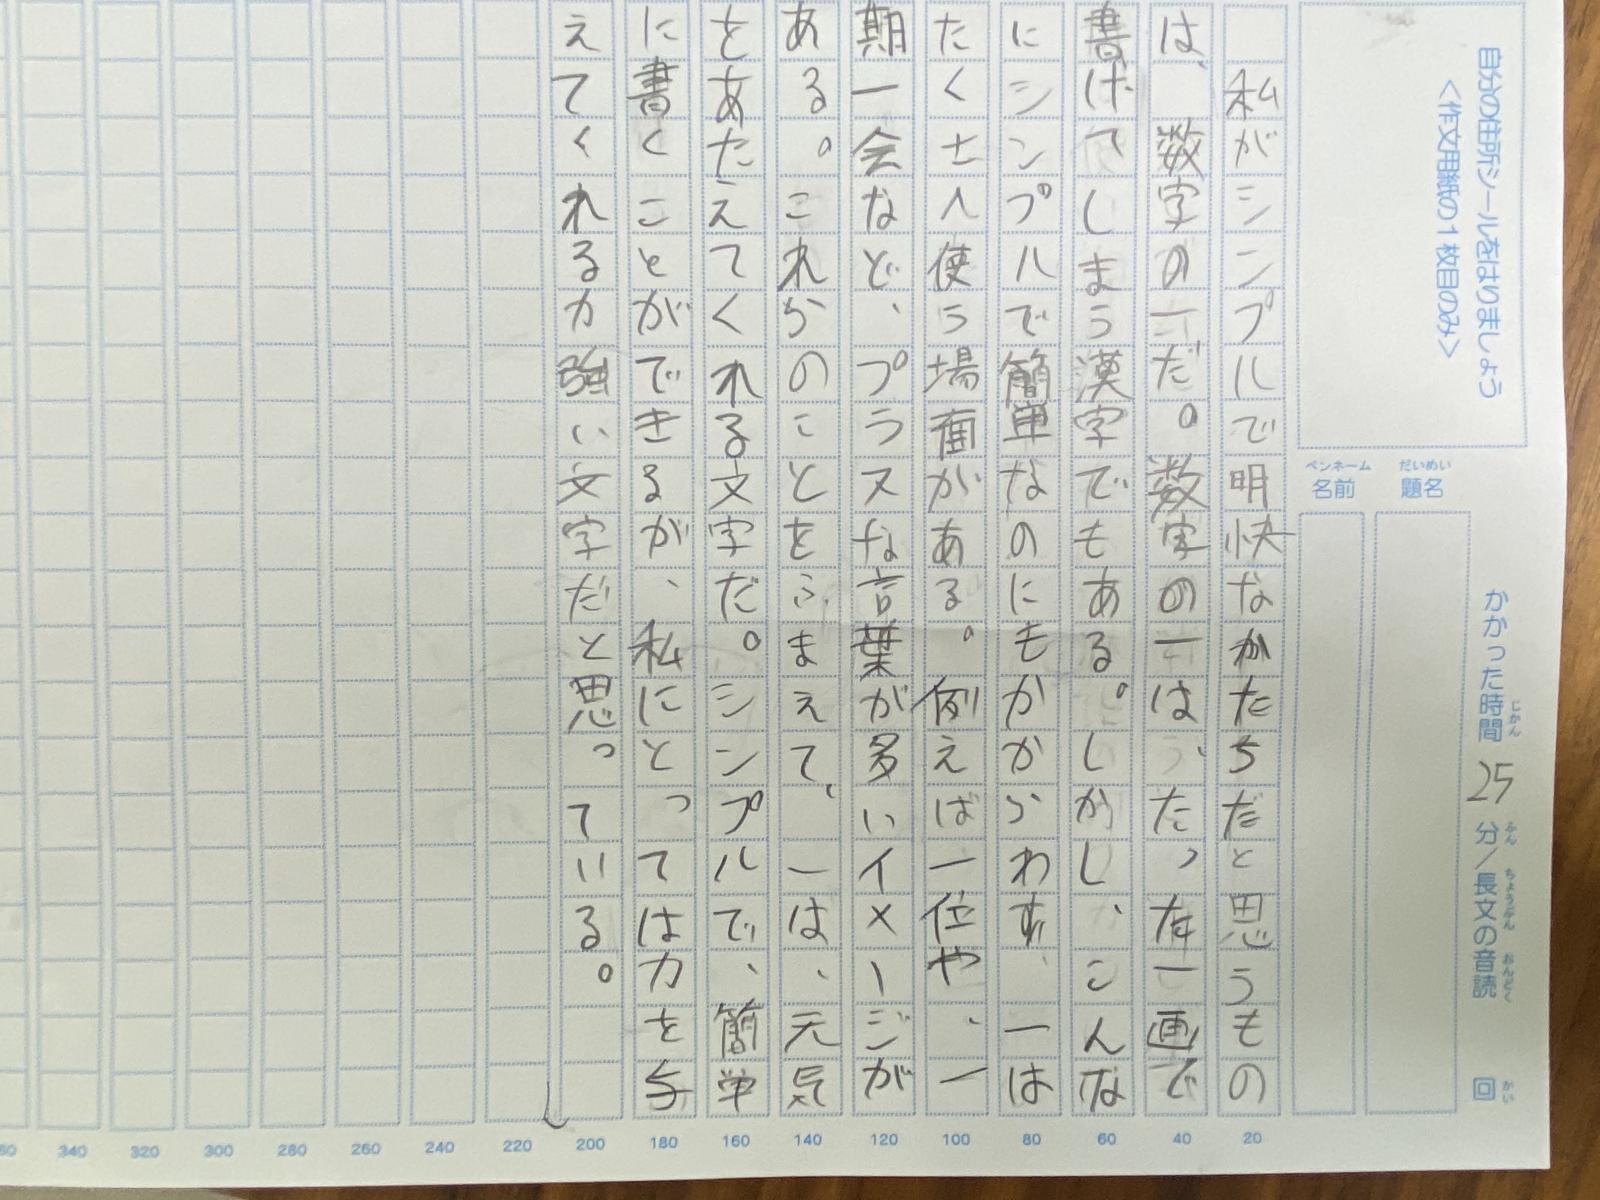 自分の住所シールをはりましょう
<作文用紙の1枚目のみ>
かかった時間 25 分/長文の音読 回
じかん ふん ちょうぶん おんどく かい
だいめい
題名
ペンネーム
名前
私がシンプルで明快なかたちだと思うもの
は、数字の一だ。数字の一は、たった一画で
書けてしまう漢字でもある。しかし、こんな
にシンプルで簡単なのにもかかわらず、一は
たくさん使う場面がある。例えば一位や、一
期一会など、プラスな言葉が多いイメージが
ある。これらのことをふまえて、一は、元気
をあたえてくれる文字だ。シンプルで、簡単
に書くことができるが、私にとっては力を与
えてくれる力強い文字だと思っている。
20
40
60
80
100
120
140
160
180
200
220
240
260
280
300
320
340